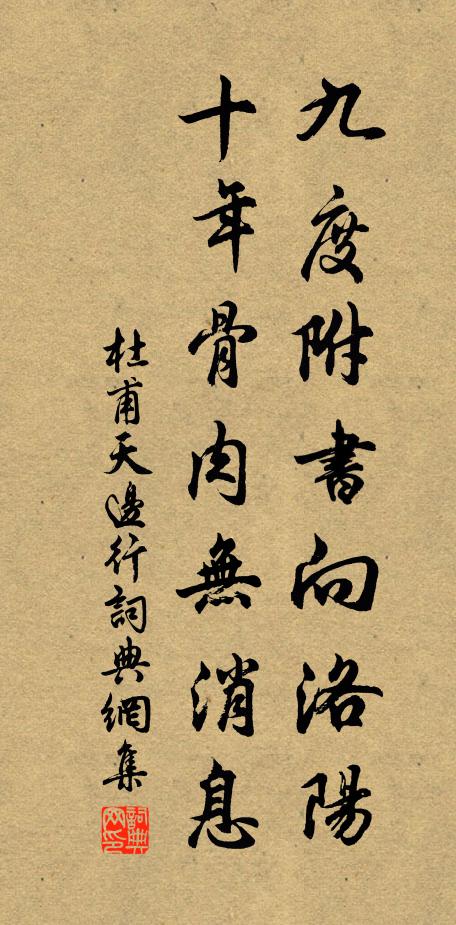 九度附書向洛陽
十年骨肉無消息
杜甫天邊行詞典網集
詞典网印